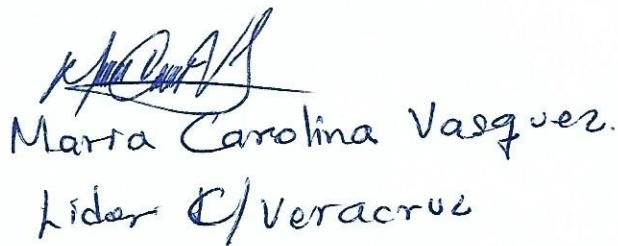 Maria Carolina Vasquez.
Lider C/Veracruz